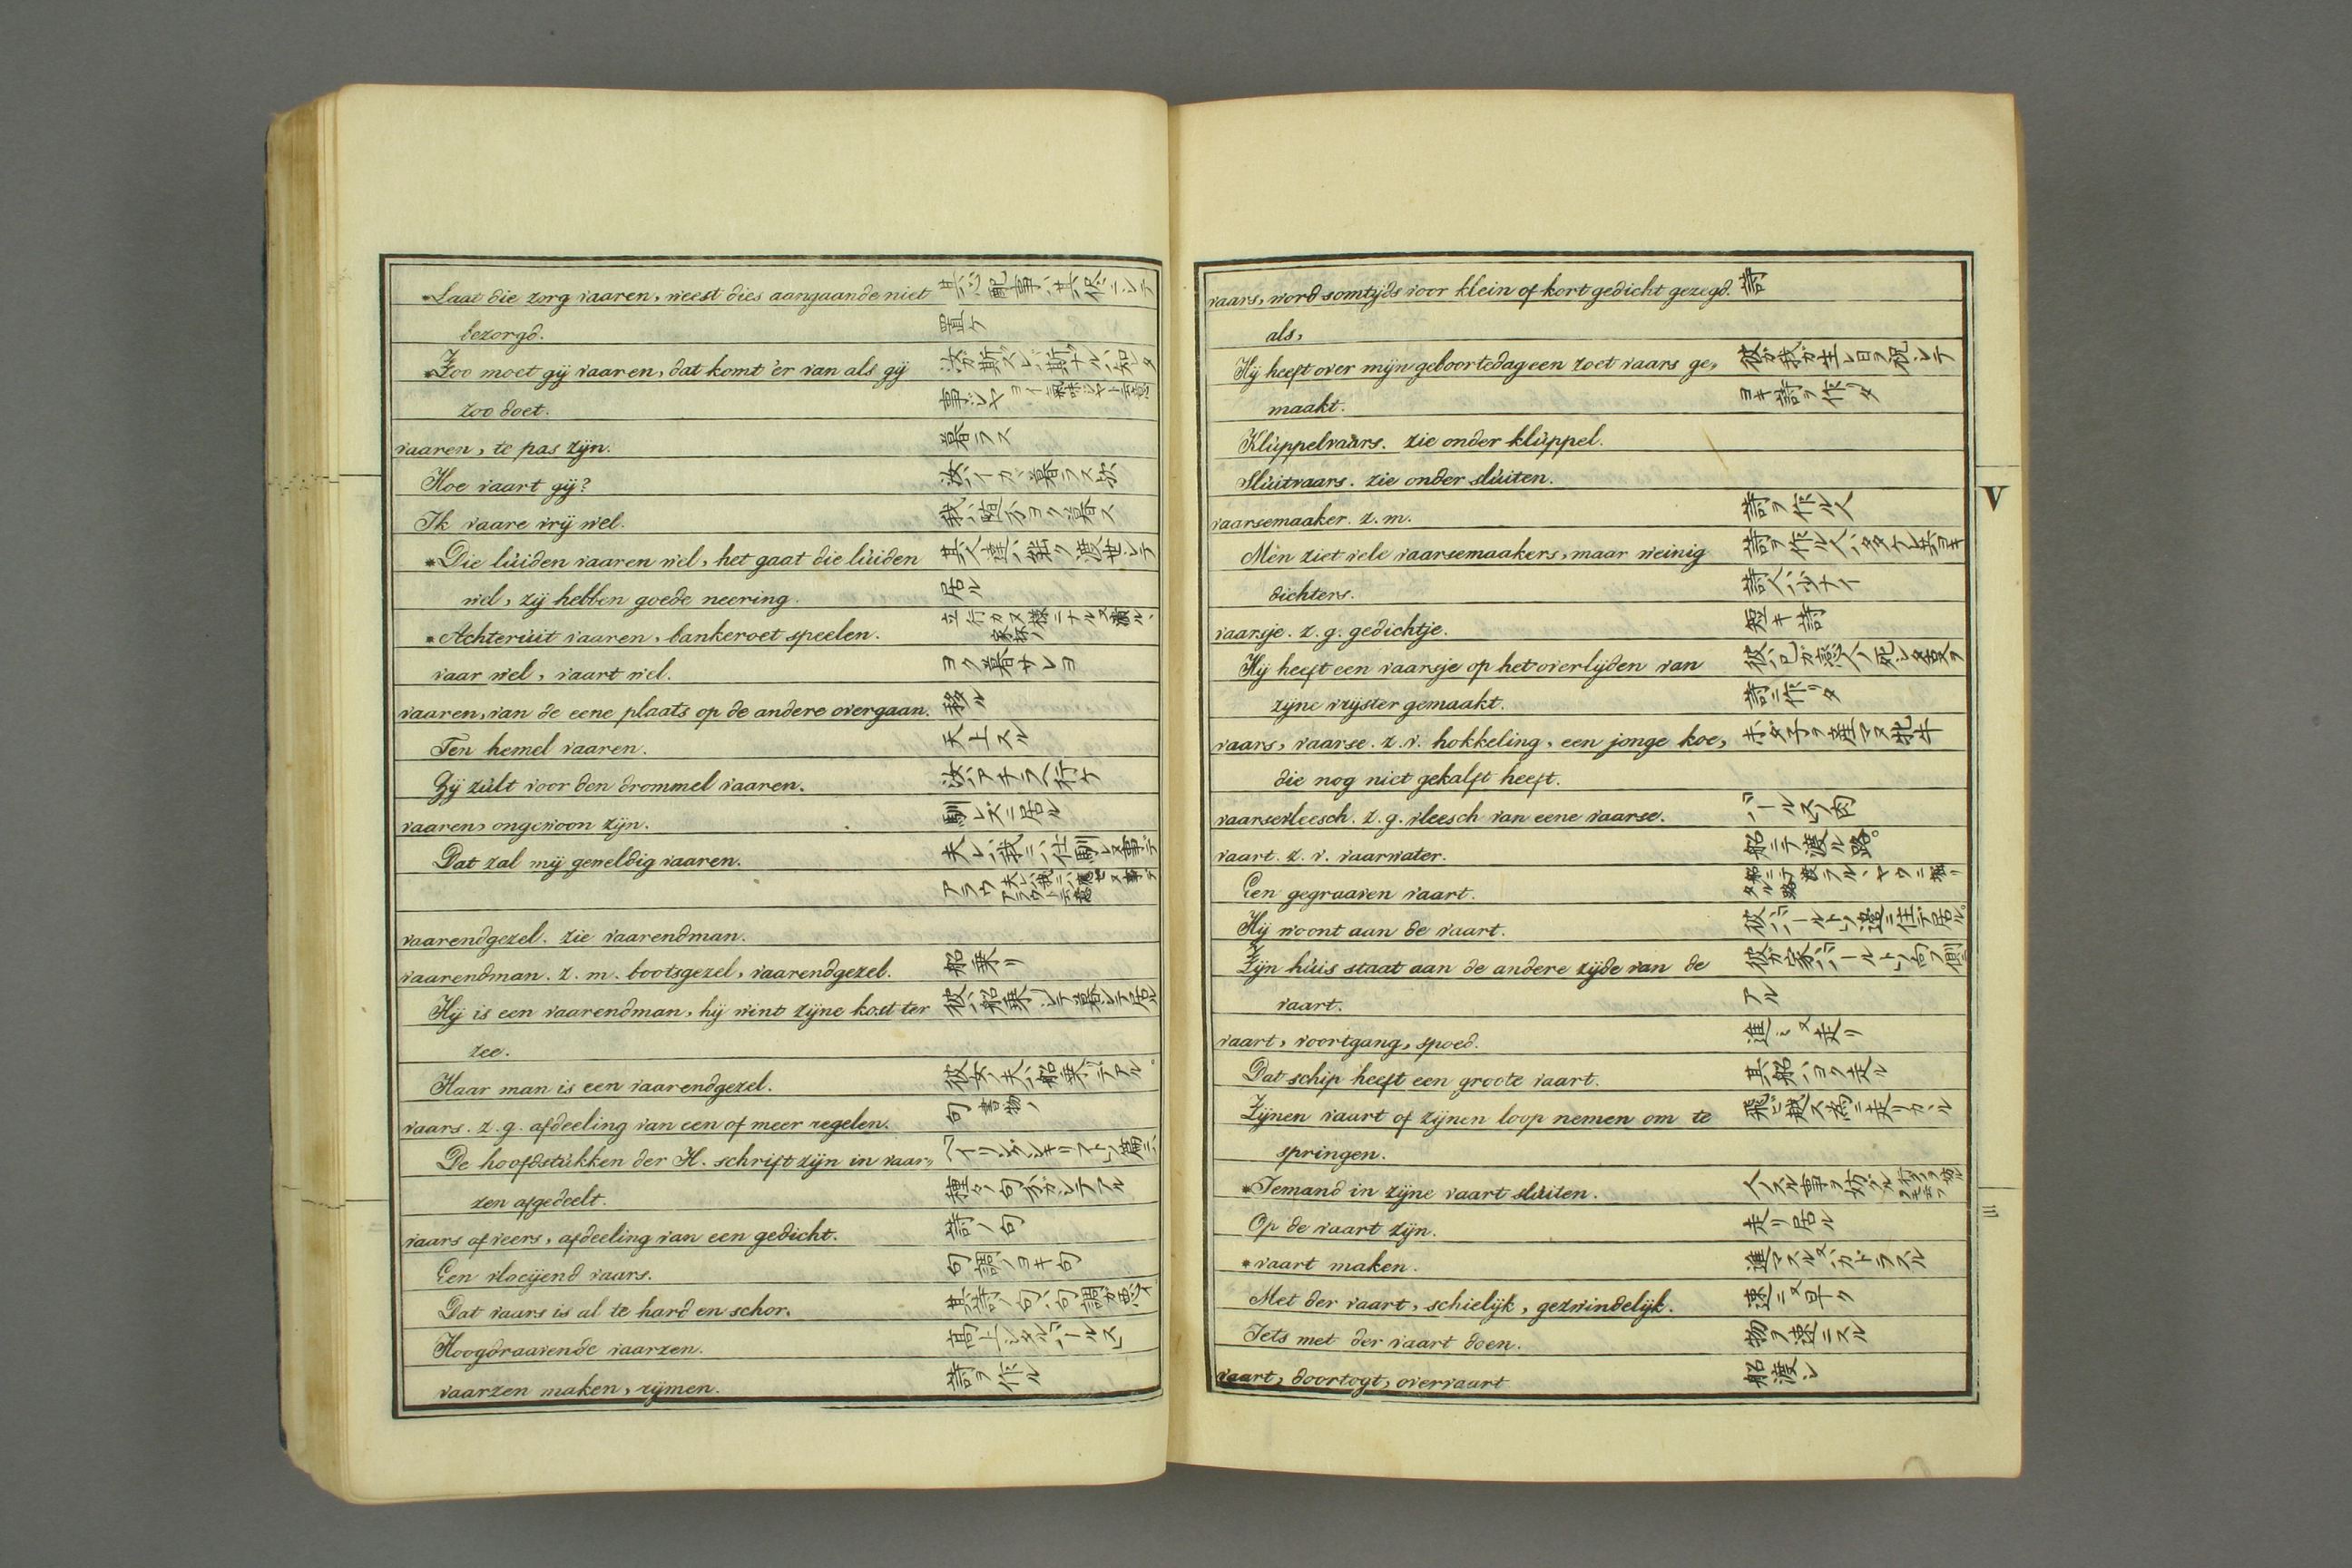 *Laat die zorg vaaren, weest dies aangaande niet 其心配事ハ其侭ニシテ
bezorgd. 置ケ
*Zoo moet gij vaaren, dat komt 'er van als gij 汝ガ斯スレバ斯ナルハ知レタ
zoo doet. 事ジヤ ヨイ氣味ジヤト云意
vaaren, te pas zijn. 暮ラス
Hoe vaart gij? 汝ハイカヾ暮ラス欤
Ik vaare vrij wel. 我ハ随分ヨク暮ス
*Die lúiden vaaren wel, het gaat die lúiden 其人達ハ能ク渡世シテ
wel, zij hebben goede neering. 居ル
*Achterúit vaaren, bankeroet speelen. 立行カヌ様ニナル
vaar wel, vaart wel. ヨク暮サレヨ
vaaren, van de eene plaats op de andere overgaan. 移ル
Ten hemel vaaren. 天上スル
Gij zúlt voor den drommel vaaren. 汝ハアチラヘ行ケ
vaaren, ongewoon zijn. 馴レズニ居ル
Dat zal mij geweldig vaaren. 夫レハ我ニハ仕馴レヌ事デ
アラウ
vaarendgezel. zie vaarendman.
vaarendman. z. m. bootsgezel, vaarendgezel. 船乗リ
Hij is een vaarendman, hij wint zijne kost ter 彼ハ船乗シテ暮シテ居ル
zee.
Haar man is een vaarendgezel. 彼女ノ夫ハ船乗リデアル。
vaars. z. g. afdeeling van een of meer regelen. 句 書物ノ
De hoofdstúkken der H. schrift zijn in vaar,
zen afgedeelt. 種々ノ句ガ分カシテアル
vaars of veers, afdeeling van een gedicht. 詩ノ句
Een vloeijend vaars. 句調ノヨキ句
Dat vaars is al te hard en schor. 其詩ノ句ハ句調ガ悪イ
Hoogdraavende vaarzen. 高上シタル
vaarzen maken, rijmen. 詩ヲ作ル
vaars, word somtijds voor klein of kort gedicht gezegd. 詩
als,
Hij heeft over mijn geboortedag een zoet vaars ge, 彼ガ我ガ生レ日ヲ祝シテ
maakt. ヨキ詩ヲ作リタ
Klúppelvaars. zie onder klúppel.
Slúitvaars. zie onder slúiten.
vaarsemaaker. z. m. 詩ヲ作ル人
Men ziet vele vaarsemaakers, maar weinig 詩ヲ作ル人ハ多クアレ共ヨキ
dichters. 詩人ハ少ナイ
vaarsje. z. g. gedichtje. 短キ詩
Hij heeft een vaarsje op het overlijden van 彼ハ己ガ恋人ノ死シタ事ヲ
zijne vrijster gemaakt. 詩ニ作リタ
vaars, vaarse. z. v. hokkeling, een jonge koe, まダ子ヲ産マヌ牝牛
die nog niet gekalft heeft.
vaarsevleesch. z. g. vleesch van eene vaarse. バールスノ肉
vaart. z. v. vaarwater. 船ニテ渡ル路。
Een gegraaven vaart.
Hij woont aan de vaart. 彼ハバールトノ邉ニ住デ居ル。
Zijn húis staat aan de andere zijde van de 彼ガ家ハバールトノ向フ側ニ
vaart. アル
vaart, voortgang, spoed. 進ミ又走リ
Dat schip heeft een groote vaart. 其船ハヨク走ル
Zijnen vaart of zijnen loop nemen om te 飛ビ越ス為ニ走リカヽル
springen.
*Iemand in zijne vaart slúiten. 人ノスル事ヲ妨ゲル
Op de vaart zijn. 走リ居ル
*vaart maken. 進マスル又ハカドラスル
Met der vaart, schielijk, gezwindelijk. 速ニ又早ク
Iets met der vaart doen. 物ヲ速ニスル
vaart, doortogt, overvaart 船渡シ
V
三